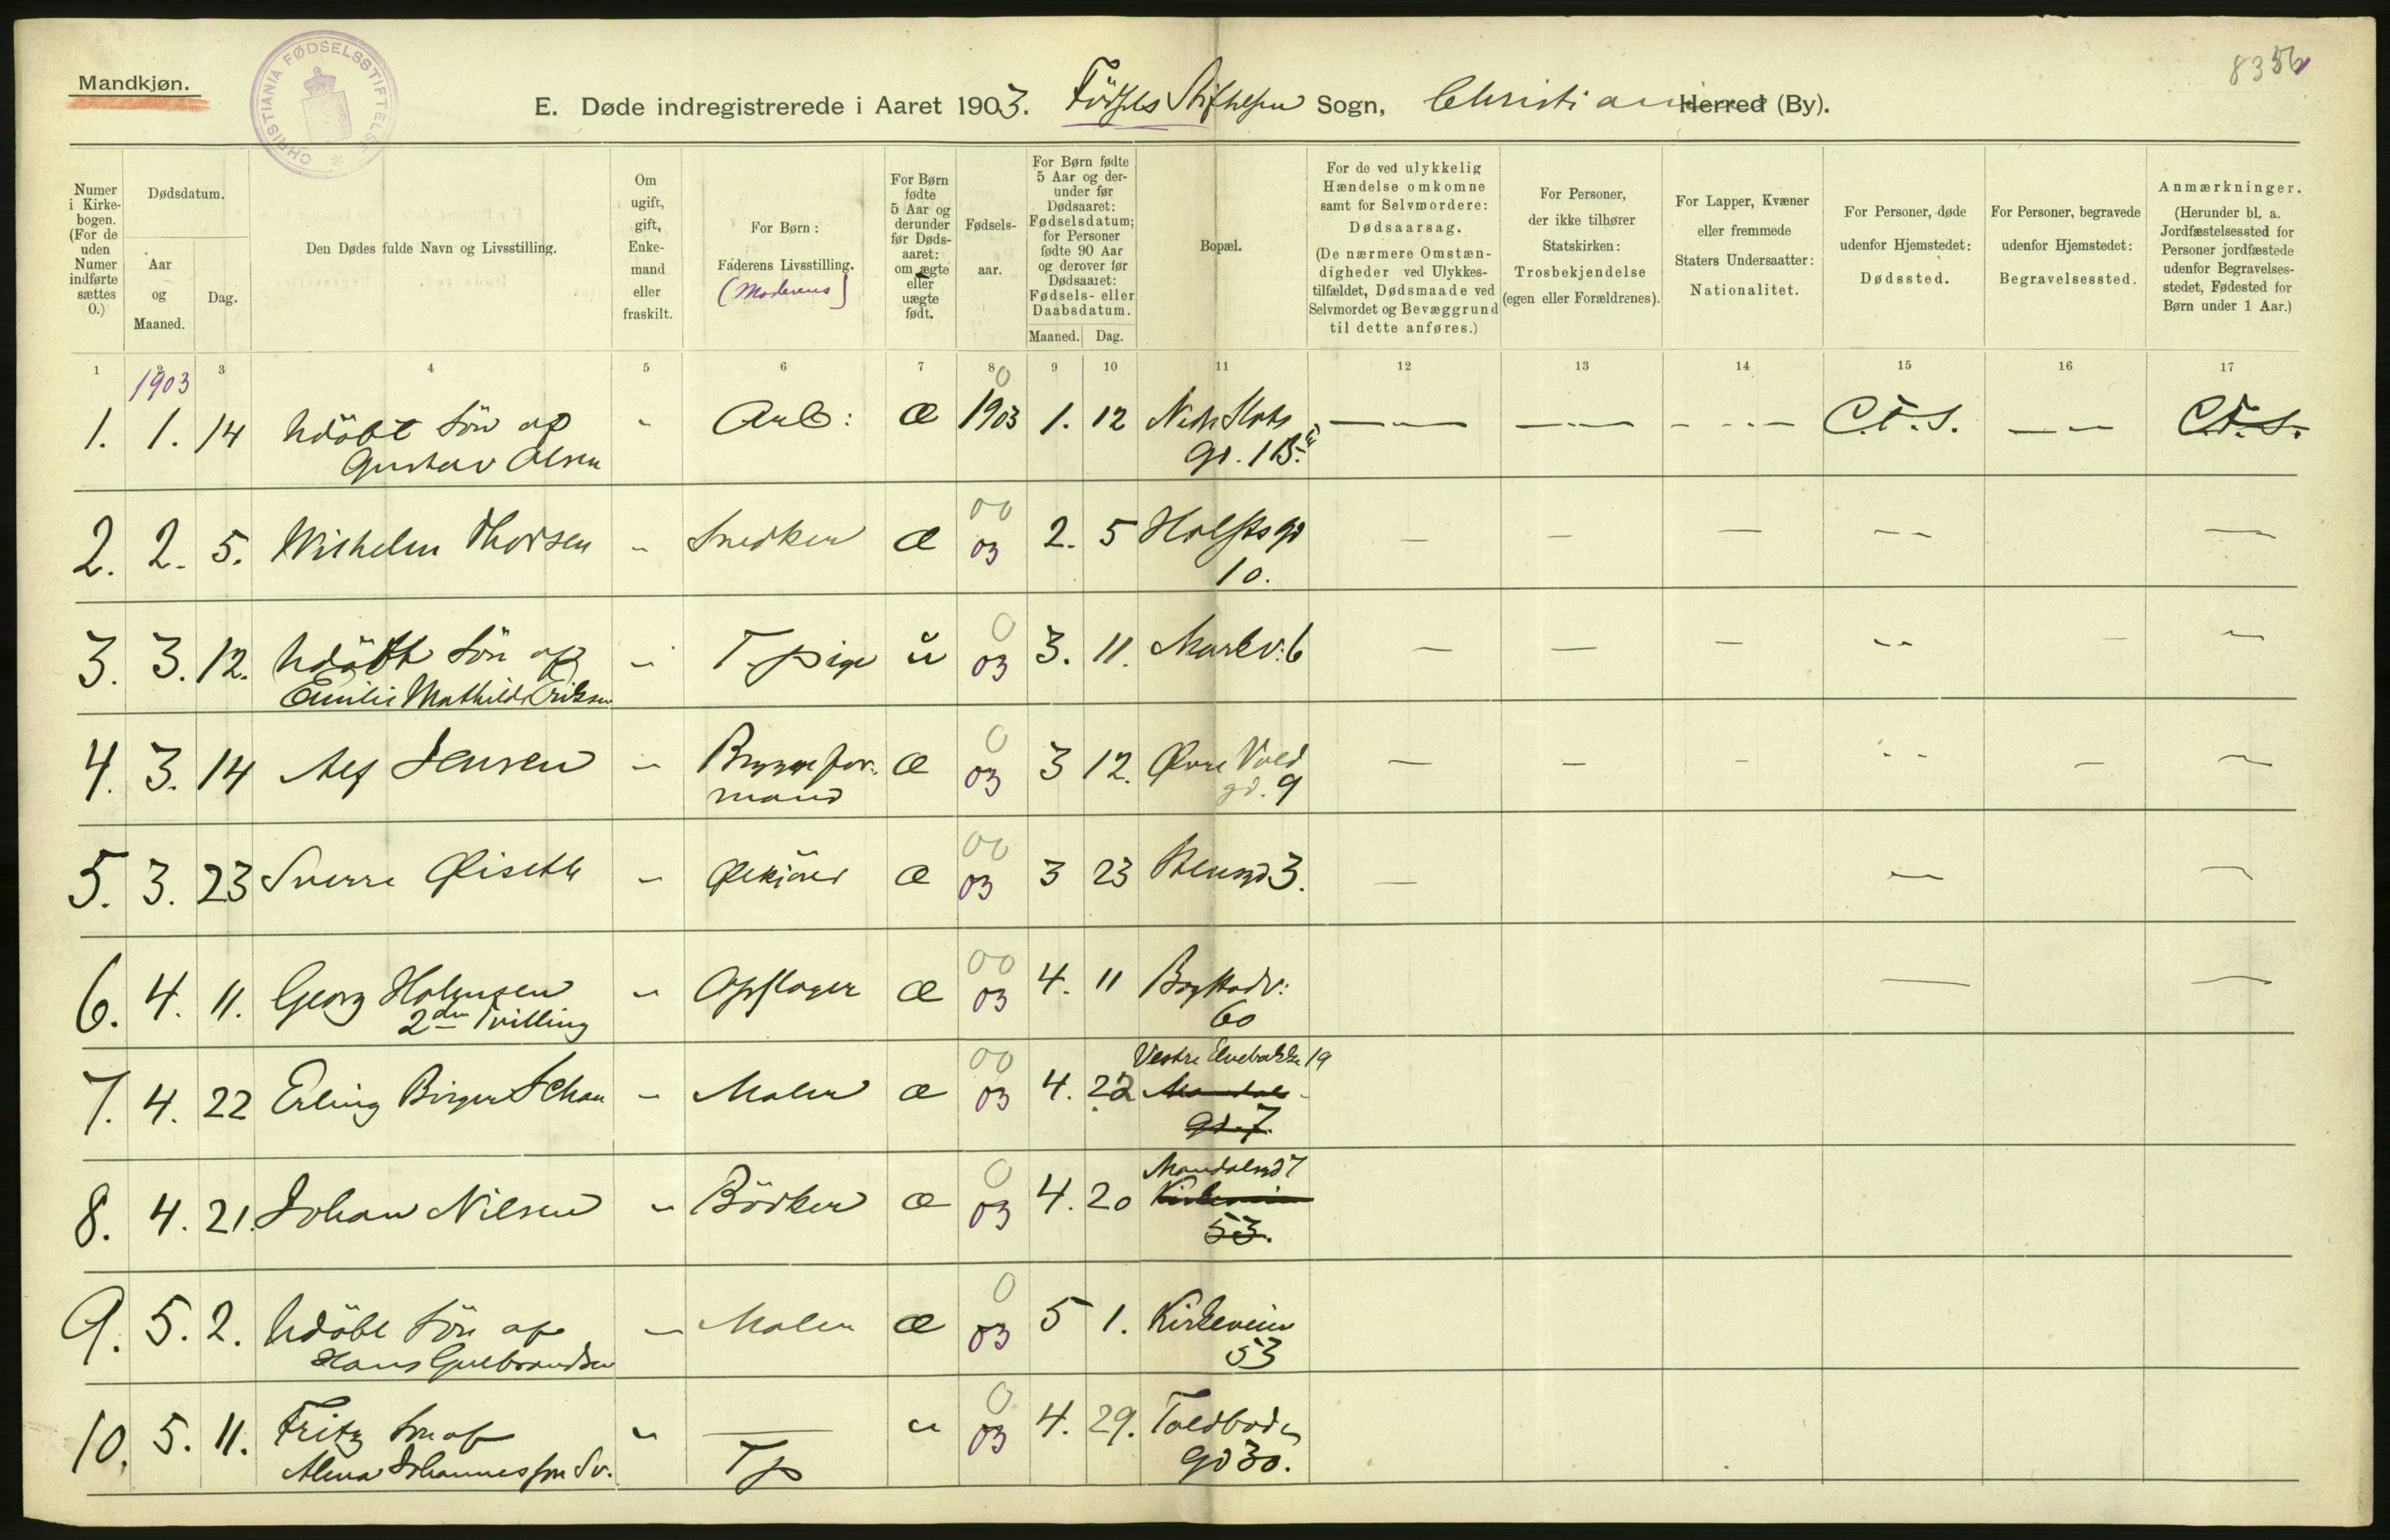 Mandkjøn.
CHRISTIANIA FØDSELSSTIFTELSE
8356
E. Døde indregistrerede i Aaret 1903. Fødsels Stiftelsen Sogn, Christiania Herred (By).
Numer i Kirkebogen. (For de uden Numer indførte sættes 0.)
Dødsdatum.
Aar og Maaned.
Dag.
Den Dødes fulde Navn og Livsstilling.
Om ugift, gift, Enkemand eller fraskilt.
For Børn: Faderens Livsstilling.
(Moderens)
For Børn fødte 5 Aar og derunder før Dødsaaret: om ægte eller uægte født.
Fødselsaar.
For Børn fødte 5 Aar og derunder før Dødsaaret: Fødselsdatum; for Personer fødte 90 Aar og derover før Dødsaaret: Fødsels- eller Daabsdatum.
Maaned. Dag.
Bopæl.
For de ved ulykkelig Hændelse omkomne samt for Selvmordere: Dødsaarsag. (De nærmere Omstændigheder ved Ulykkestilfældet, Dødsmaade ved Selvmordet og Bevæggrund til dette anføres.)
For Personer, der ikke tilhører Statskirken: Trosbekjendelse (egen eller Forældrenes).
For Lapper, Kvæner eller fremmede Staters Undersaatter: Nationalitet.
For Personer, døde udenfor Hjemstedet: Dødssted.
For Personer, begravede udenfor Hjemstedet: Begravelsessted.
Anmærkninger. (Herunder bl. a. Jordfæstelsessted for Personer jordfæstede udenfor Begravelsesstedet, Fødested for Børn under 1 Aar.)
1 2 3 4 5 6 7 8 9 10 11 12 13 14 15 16 17
1903
0
1. 1. 14 Udöbt Sön af - Arb: Æ 1903 1. 12 C.F.S. C.F.S.
Gustav Olsen gd. 1 B.
00
2. 2. 5. Wilhelm Thorsen - Snedker Æ 03 2. 5 Holsts gd
10.
0
3. 3. 12. Udöbt Sön af - T. pige u 03 3. 11. Markv: 6
Emilie Mathilde Eriksen
0
4. 3. 14 Alf Jensen - Bryggefor- Æ 03 3 12. Øvre Vold
mand gd. 9
00
5. 3. 23 Sverre - Æ 03 3 23 Stensgd 3.
00
6. 4. 11. Georg - Opslager Æ 03 4. 11 Bogstadv:
2den Tvilling 60
00 Vestre Elvebakke 19
7. 4. 22 Erling Birger Schau - Maler æ 03 4. 22 Mandals
gd. 7.
0 Mandalsgd 7
8. 4. 21. Johan Nilsen - Bödker æ 03 4. 20 Kirkeveien
53.
0
9. 5. 2. Udöbt Sön af - Maler æ 03 5 1. Kirkeveien
Hans Gulbrandsen 53
0
10. 5. 11. Fritz Sön af - u 03 4. 29. Toldbod
Alma Johannesson Sv. Tp gd 30.